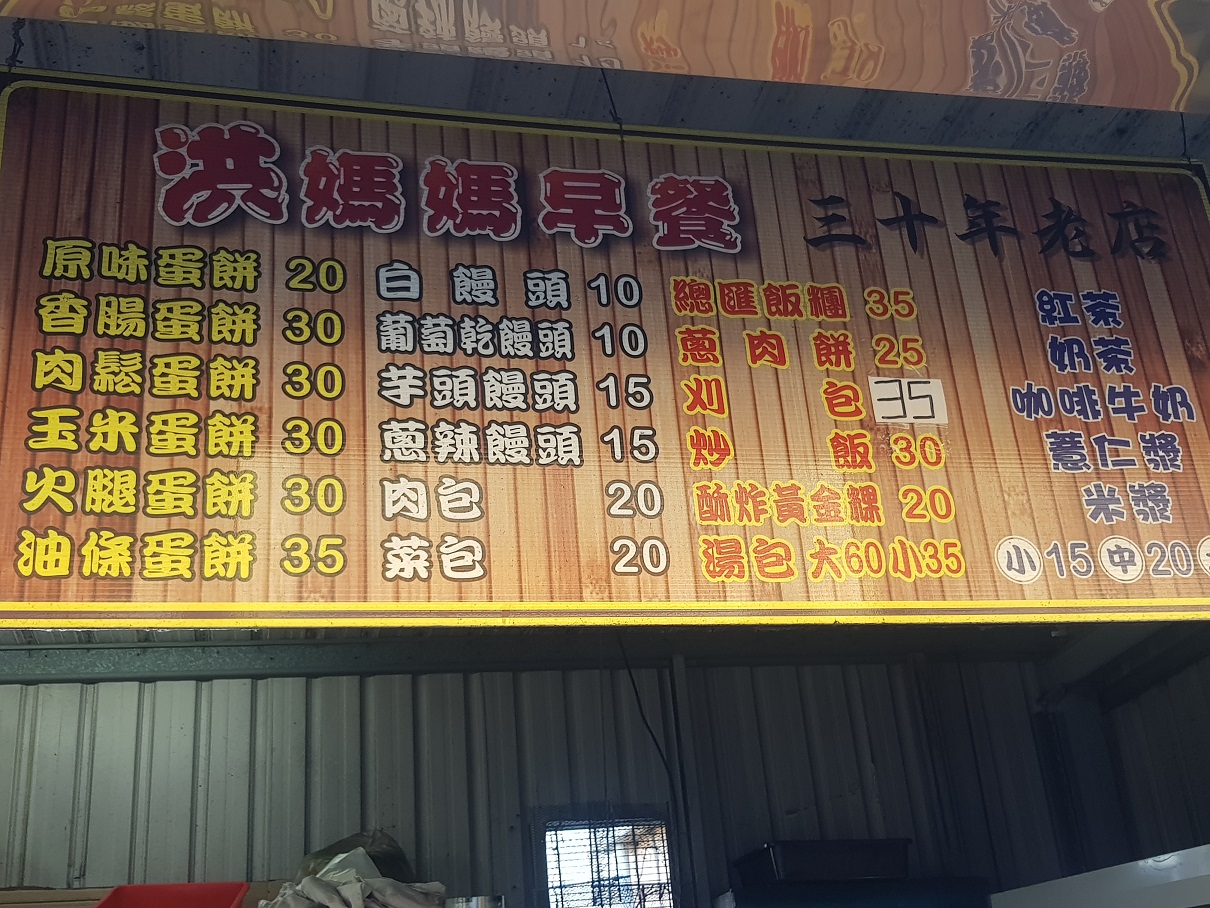 洪媽媽早餐 三十年老店
原味蛋餅 20
香腸蛋餅 30
肉鬆蛋餅 30
玉米蛋餅 30
火腿蛋餅 30
油條蛋餅 35
白饅頭 10
葡萄乾饅頭 10
芋頭饅頭 15
蔥辣饅頭 15
肉包 20
菜包 20
總匯飯糰 35
蔥肉餅 25
刈包 35
炒飯 30
酥炸黃金粿 20
湯包 大60小35
紅茶
奶茶
咖啡牛奶
薏仁漿
米漿
小15中20